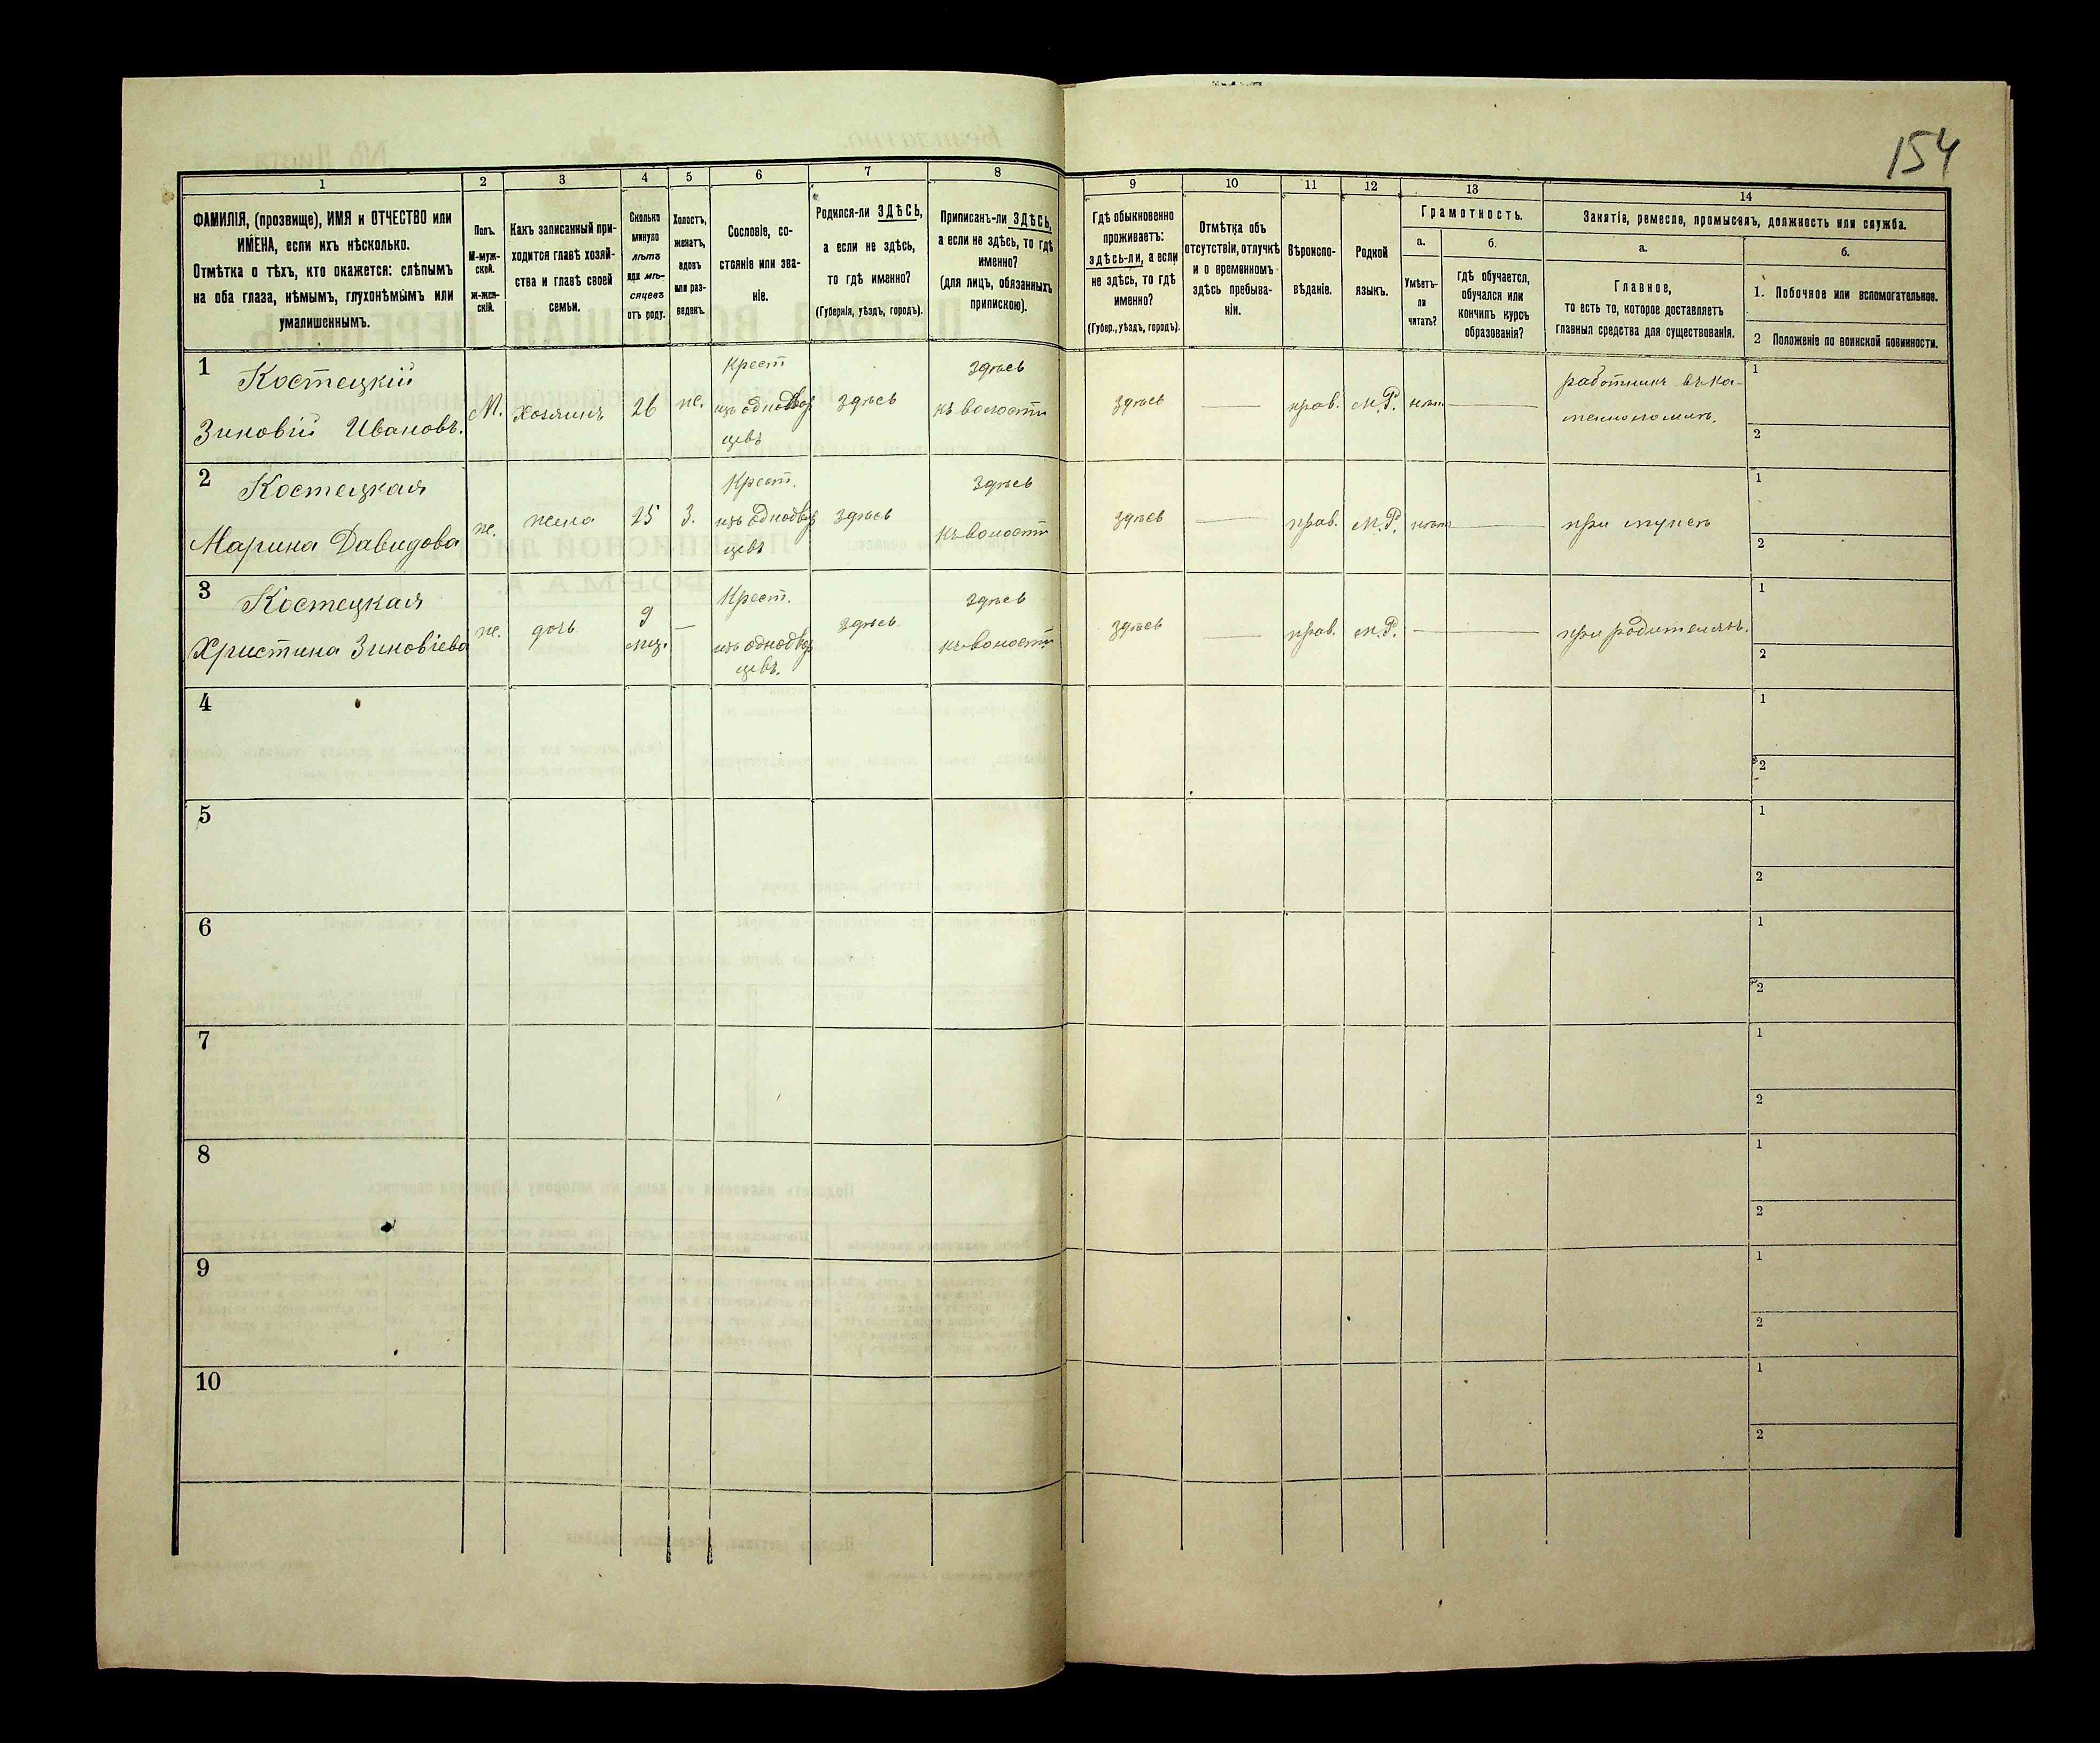 154
1 2 3 4 5 6 7 8 9 10 11 12 13 14
ФАМИЛІЯ, (прозвище), ИМЯ и ОТЧЕСТВО или
ИМЕНА, если ихъ нѣсколько.
Отмѣтка о тѣхъ, кто окажется: слѣпымъ
на оба глаза, нѣмымъ, глухонѣмымъ или
умалишеннымъ.
Полъ.
М-муж-
ской.
Ж-жен-
скій.
Какъ записанный при-
ходится главѣ хозяй-
ства и главѣ своей
семьи.
Сколько
минуло
лѣтъ
или мѣ-
сяцевъ
отъ роду.
Холостъ,
женатъ,
вдовъ
или раз-
веденъ.
Сословіе, со-
стояніе или зва-
ніе.
Родился-ли ЗДѢСЬ,
а если не здѣсь,
то гдѣ именно?
(Губернія, уѣздъ, городъ).
Приписанъ-ли ЗДѢСЬ,
а если не здѣсь, то гдѣ
именно?
(для лицъ, обязанныхъ
припискою).
Гдѣ обыкновенно
проживаетъ:
здѣсь-ли, а если
не здѣсь, то гдѣ
именно?
(Губер., уѣздъ, городъ).
Отмѣтка объ
отсутствіи, отлучкѣ
и о временномъ
здѣсь пребыва-
ніи.
Вѣроиспо-
вѣданіе.
Родной
языкъ.
Грамотность.
а.
Умѣетъ-
ли
читать?
б.
гдѣ обучается,
обучался или
кончилъ курсъ
образованія?
Занятіе, ремесло, промыселъ, должность или служба.
а.
Главное,
то есть то, которое доставляетъ
главныя средства для существованія.
б.
1. Побочное или вспомогательное.
2 Положеніе по воинской повинности.
1 Костецкій
Зиновій Ивановъ.
М.
хозяинъ
26
ж.
Крест
изъ однодвор
цевъ
здѣсь
здѣсь
къ волости
здѣсь
прав.
М.Р.
нѣтъ
работникъ въ ка-
менноломнѣ.
1
2
2 Костецкая
Марина Давидова
ж.
жена
25
з.
Крест.
изъ однодвор
цевъ
здѣсь
здѣсь
къ волости
здѣсь
прав.
М.Р.
нѣтъ
при мужѣ
1
2
3 Костецкая
Христина Зиновіева
ж.
дочь
9
мѣс.
—
Крест.
изъ однодвор
цевъ.
здѣсь
здѣсь
къ волости
здѣсь
прав.
М.Р.
при родителяхъ.
1
2
4
1
2
5
1
2
6
1
2
7
1
2
8
1
2
9
1
2
10
1
2